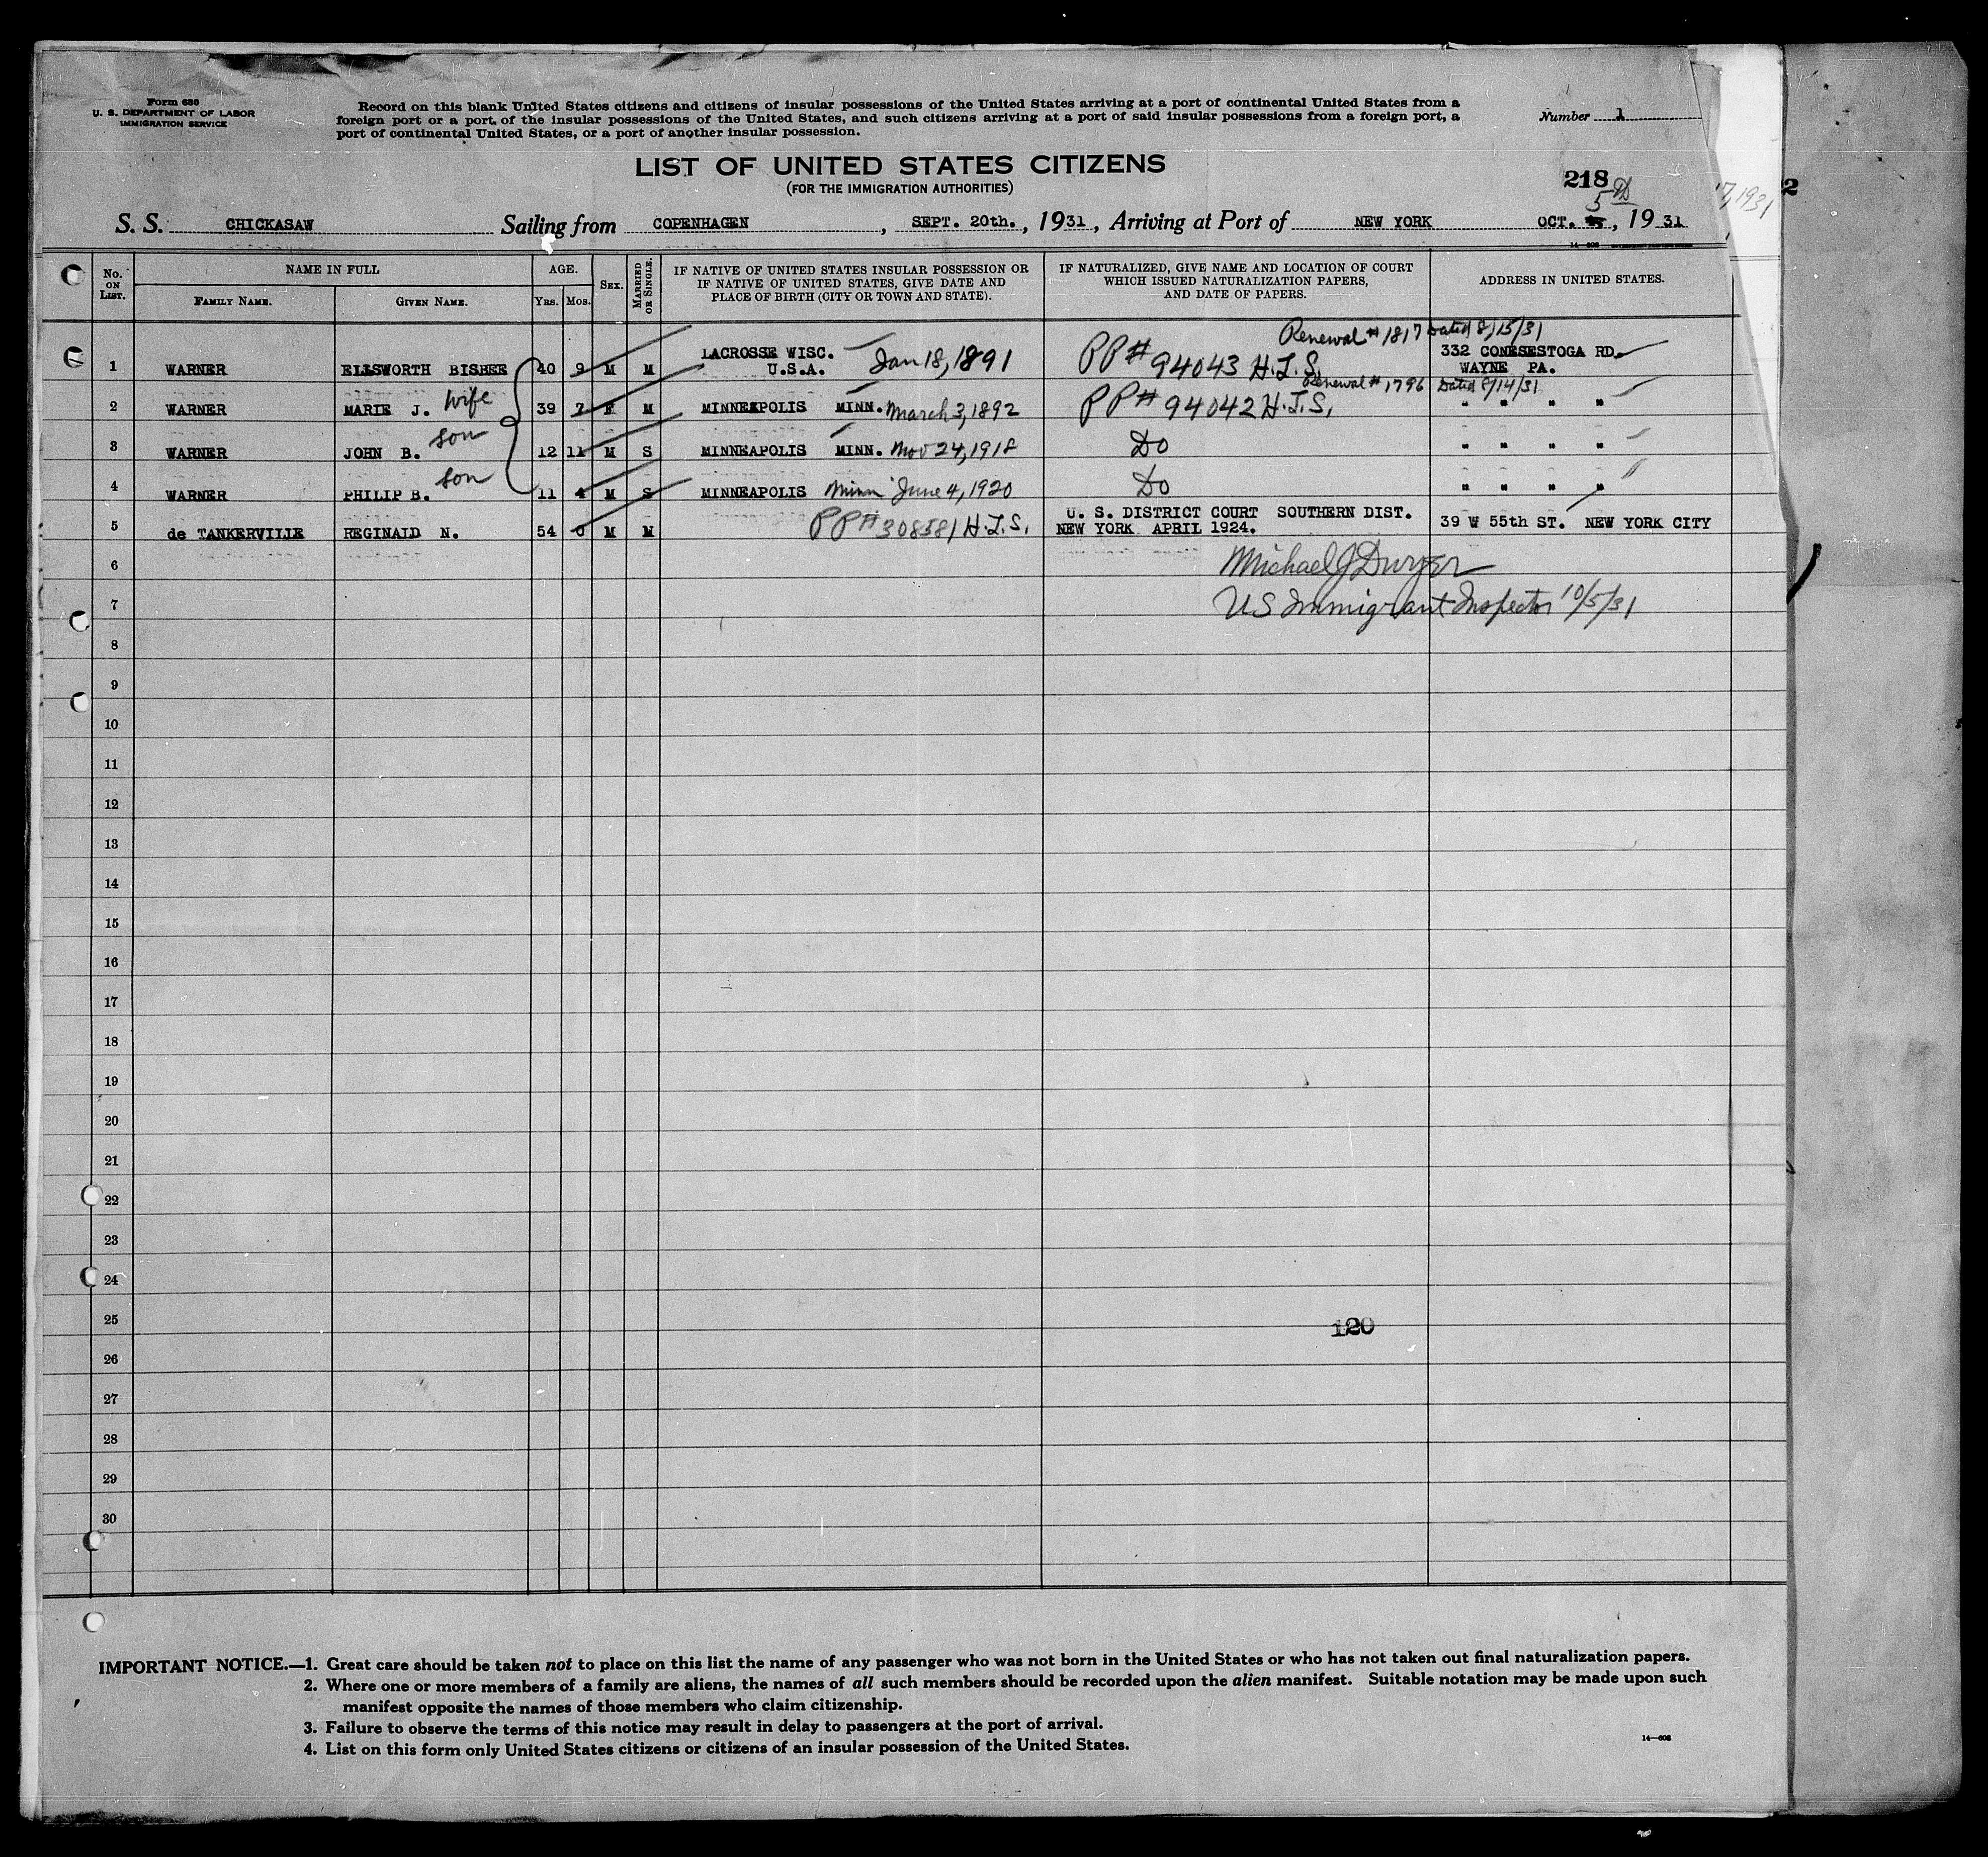 Form 630
U. S. DEPARTMENT OF LABOR
IMMIGRATION SERVICE
Record on this blank United States citizens and citizens of insular possessions of the United States arriving at a port of continental United States from a
foreign port or a port of the insular possessions of the United States, and such citizens arriving at a port of said insular possessions from a foreign port, a
port of continental United States, or a port of another insular possession.
Number 1
LIST OF UNITED STATES CITIZENS
(FOR THE IMMIGRATION AUTHORITIES)
218
2
5th
7, 1931
S. S. CHICKASAW Sailing from COPENHAGEN, SEPT. 20th., 1931, Arriving at Port of NEW YORK OCT. , 1931
No. ON LIST.
NAME IN FULL
FAMILY NAME. GIVEN NAME.
AGE.
YRS. MOS.
SEX.
MARRIED OR SINGLE.
IF NATIVE OF UNITED STATES INSULAR POSSESSION OR
IF NATIVE OF UNITED STATES, GIVE DATE AND
PLACE OF BIRTH (CITY OR TOWN AND STATE).
IF NATURALIZED, GIVE NAME AND LOCATION OF COURT
WHICH ISSUED NATURALIZATION PAPERS,
AND DATE OF PAPERS.
ADDRESS IN UNITED STATES.
Renewal #1817 Dated 8/15/31
1 WARNER ELLSWORTH BISBEE 40 9 M M LACROSSE WISC. U.S.A. Jan 18, 1891 PP# 94043 H.J.S. 332 CONESESTOGA RD. WAYNE PA.
Renewal #1796 Dated 8/14/31
2 WARNER MARIE J. Wife 39 7 F M MINNEAPOLIS MINN. March 3, 1892 PP# 94042 H.J.S. " " " "
3 WARNER JOHN B. son 12 11 M S MINNEAPOLIS MINN. Nov 24, 1918 Do " " " "
4 WARNER PHILIP B. son 11 4 M S MINNEAPOLIS Minn June 4, 1920 Do " " " "
5 de TANKERVILLE REGINALD N. 54 0 M M PP# 308581 H.J.S. U. S. DISTRICT COURT SOUTHERN DIST. NEW YORK APRIL 1924. 39 W 55th ST. NEW YORK CITY
6 Michael J Dwyer
7 US Immigrant Inspector 10/5/31
8
9
10
11
12
13
14
15
16
17
18
19
20
21
22
23
24
25
120
26
27
28
29
30
IMPORTANT NOTICE.—1. Great care should be taken not to place on this list the name of any passenger who was not born in the United States or who has not taken out final naturalization papers.
2. Where one or more members of a family are aliens, the names of all such members should be recorded upon the alien manifest. Suitable notation may be made upon such
manifest opposite the names of those members who claim citizenship.
3. Failure to observe the terms of this notice may result in delay to passengers at the port of arrival.
4. List on this form only United States citizens or citizens of an insular possession of the United States.